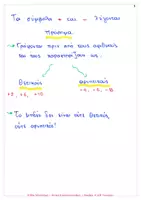 Τα σύμβολα + και - λέγονται
πρόσημα.
→ Γράφονται πριν από τους αριθμούς
και τους χαρακτηρίζουν ως:
θετικούς
αρνητικούς
→ Το μηδέν δεν είναι ούτε θετικός
ούτε αρνητικός!